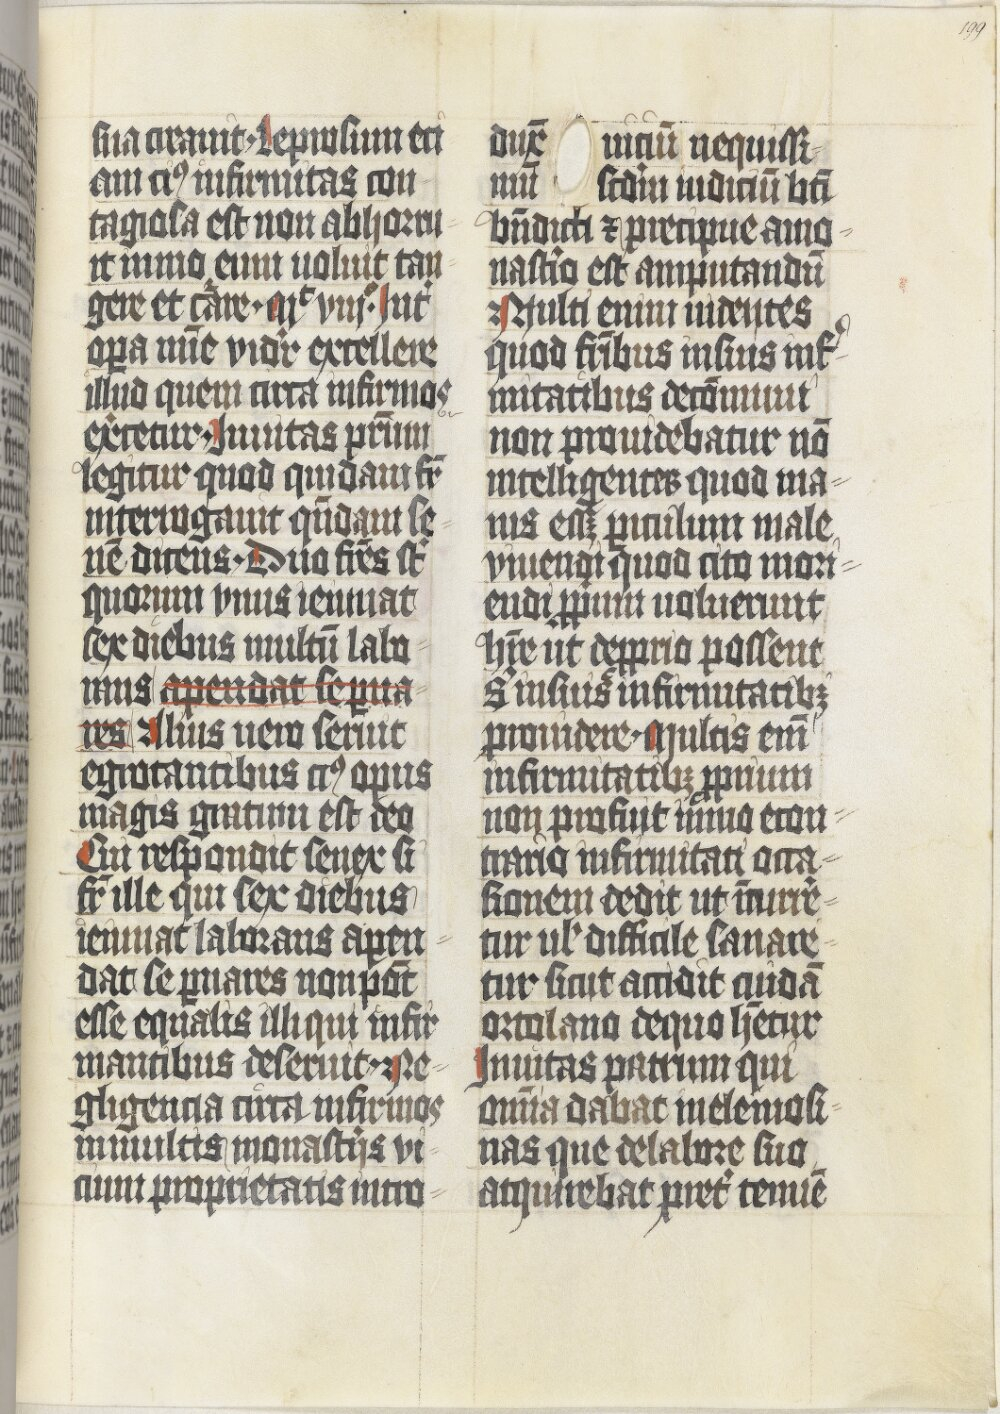 199
sua curauit. Leprosum eti
am cuiꝰ infirmitas con
tagiosa est non abhorru
it immo eum uoluit tan
gere et c̄are. Mt͛ viij. Int͛
oꝑa mīe vid͛r excellere
illud quem circa infirmos
ex͛cetur. Inuitas pr̄um
legitur quod quidam fr̄
interrogauit qn̄dam se
nē dicens. Duo fr̄es st͛
quorum vnus ieiunat
sex diebus multū labo
rans apendat se pna
res Alius uero seruit
egrotantibus cuiꝰ opus
magis gratum est deo
Cui respondit senex si
fr̄ ille qui sex diebus
ieiunat laborans apen
dat se pnares non pōt
esse equalis illi qui infir
mantibus deseruit. Ne
gligencia circa infirmos
inmultis monastꝫijs vi
cium proprietatis intro
dux̄ uiciū nequissi
mū scd̄m iudiciū bt̄i
bn̄dicti ⁊ precipue a mo
nast͛io est amputandū
Multi enim uidentes
quod fr̄ibus insuis inf͛
mitatibus decōmuni
non prouidebatur nō
intelligentes quod ma
ius esset ꝑiculum male
viuendi quod cito mori
endi ꝓprium uoluerunt
hr̄e ut deꝓprio possent
s͛ insuis infirmitatibꝫ
prouidere. Multis em̄
infirmitatibꝫ ꝓprium
non profuit immo econ
trario infirmitati occa
sionem dedit ut īcurre͛
tur ul̛ difficile sanare
tur sicut accidit cuidā
ortolano dequo hēetur
Inuitas patrum qui
omīa dabat inelemosi
nas que delabore suo
acquirebat pret͛ tenuē